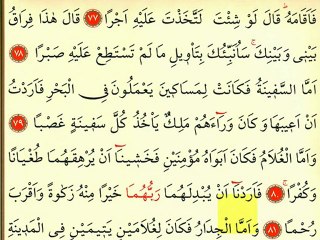 فَاَقَامَهُ قَالَ لَوْ شِئْتَ لَتَّخَذْتَ عَلَيْهِ اَجْرًا ٧٧ قَالَ هٰذَا فِرَاقُ
بَيْنٖى وَبَيْنِكَ سَاُنَبِّئُكَ بِتَاْوٖيلِ مَا لَمْ تَسْتَطِعْ عَلَيْهِ صَبْرًا ٧٨
اَمَّا السَّفٖينَةُ فَكَانَتْ لِمَسَاكٖينَ يَعْمَلُونَ فِى الْبَحْرِ فَاَرَدْتُ
اَنْ اَعٖيبَهَا وَكَانَ وَرَاۤءَهُمْ مَلِكٌ يَاْخُذُ كُلَّ سَفٖينَةٍ غَصْبًا ٧٩
وَاَمَّا الْغُلَامُ فَكَانَ اَبَوَاهُ مُؤْمِنَيْنِ فَخَشٖينَاۤ اَنْ يُرْهِقَهُمَا طُغْيَانًا
وَكُفْرًا ٨٠ فَاَرَدْنَاۤ اَنْ يُبْدِلَهُمَا رَبُّهُمَا خَيْرًا مِنْهُ زَكٰوةً وَاَقْرَبَ
رُحْمًا ٨١ وَاَمَّا الْجِدَارُ فَكَانَ لِغُلَامَيْنِ يَتٖيمَيْنِ فِى الْمَدٖينَةِ